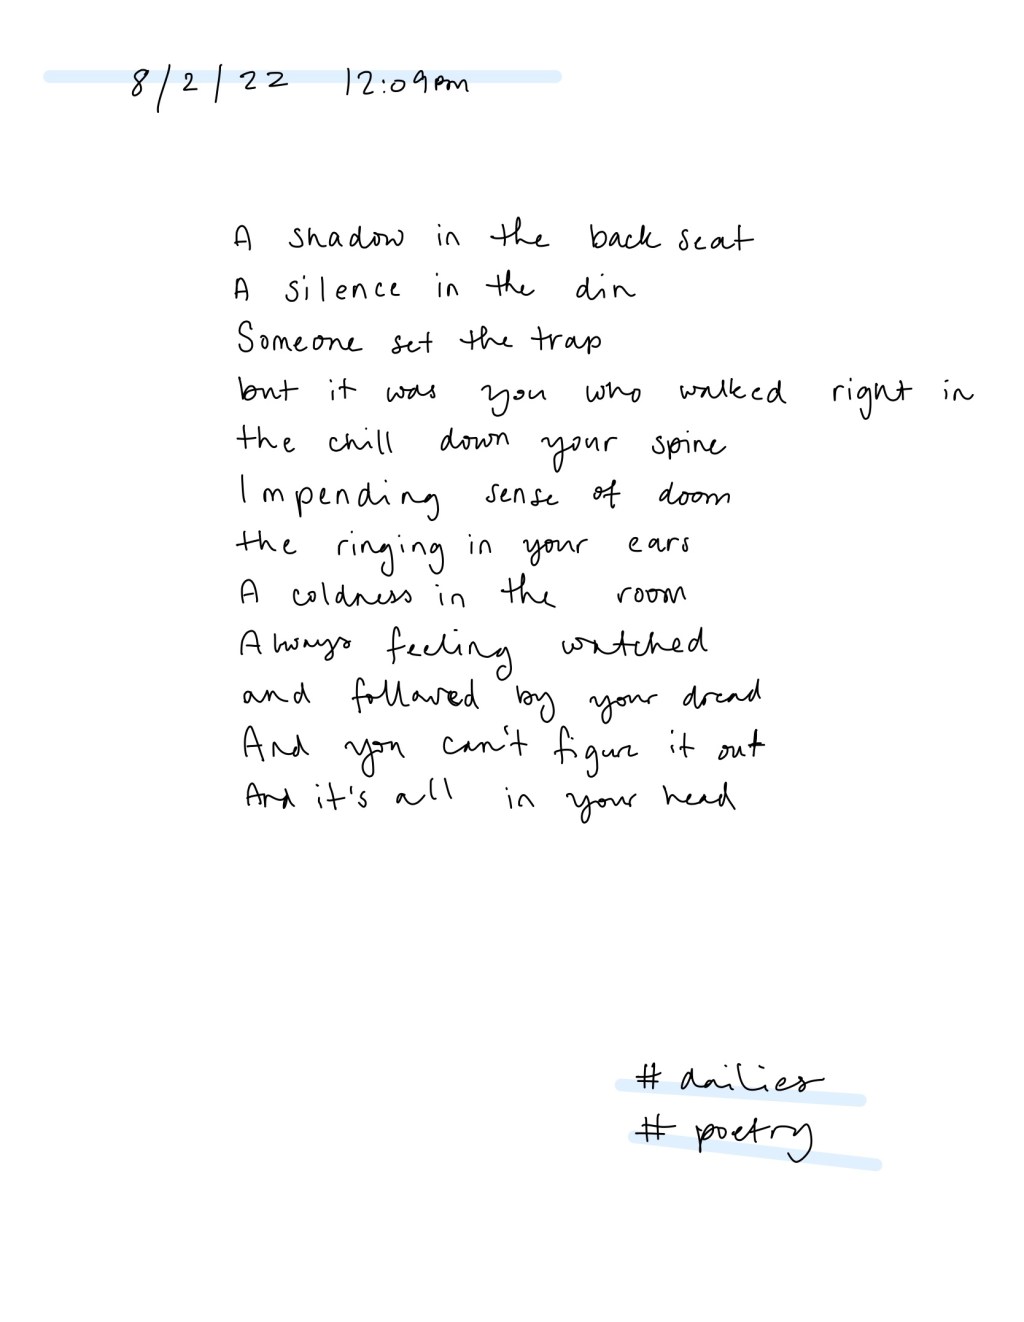 8/2/22 12:09pm
A shadow in the back seat
A silence in the din
Someone set the trap
but it was you who walked right in
the chill down your spine
Impending sense of doom
the ringing in your ears
A coldness in the room
Always feeling watched
and followed by your dread
And you can't figure it out
And it's all in your head
# dailies
# poetry